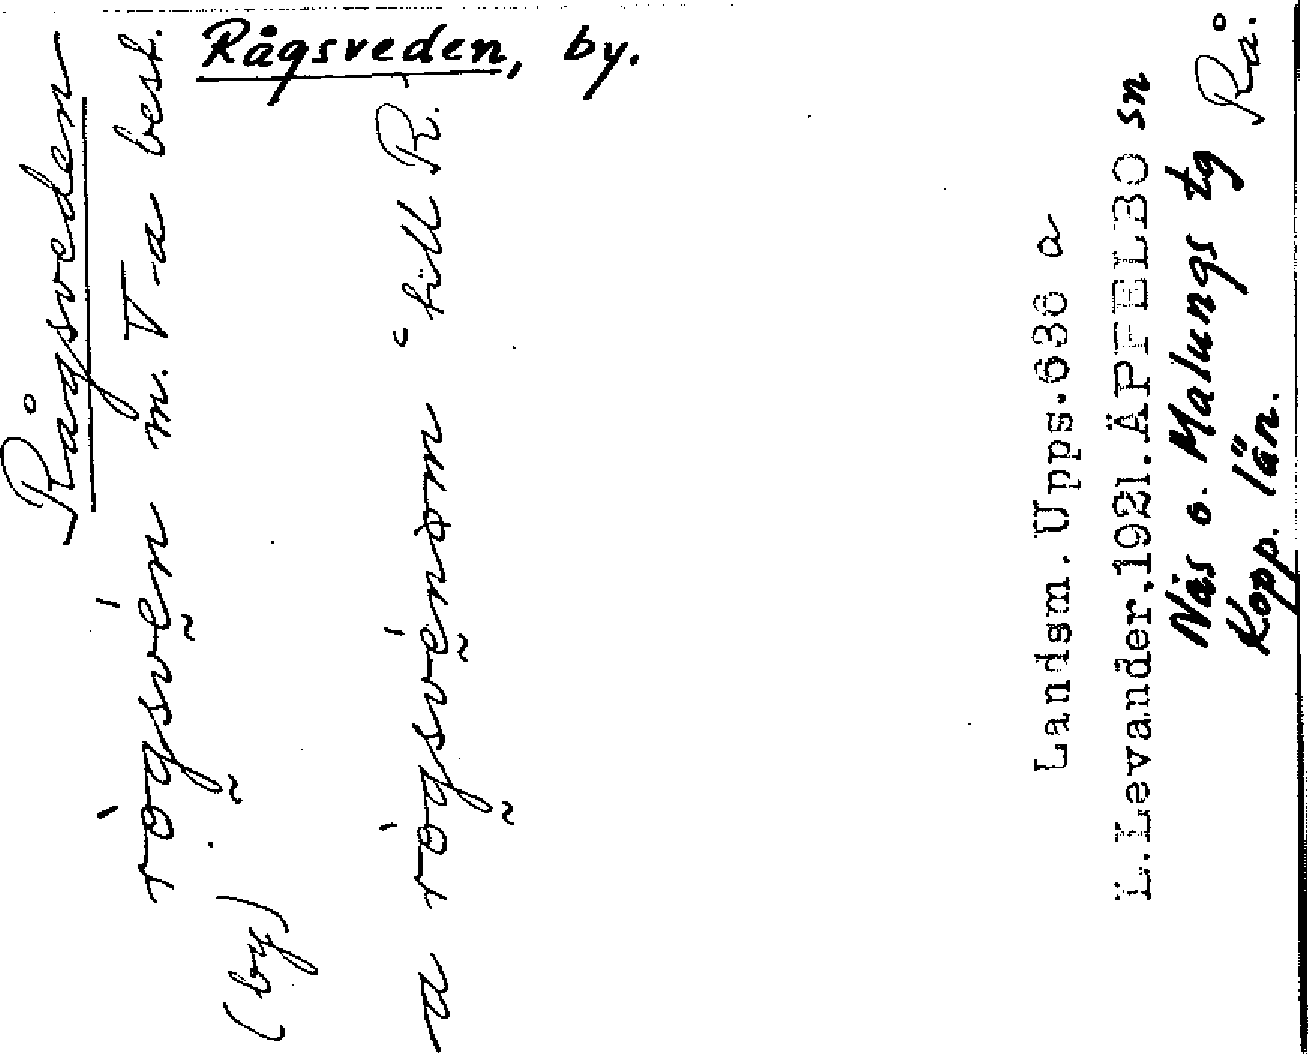 Rågsveden, by.
Rågsveden
rògsvén m. V-a best.
(by)
a rògsvénmən : till R.
Landsm. Upps.636 a
L.Levander,1921.ÄPPELBO sn
Nås o. Malungs tg
Kopp. län.
Rå.